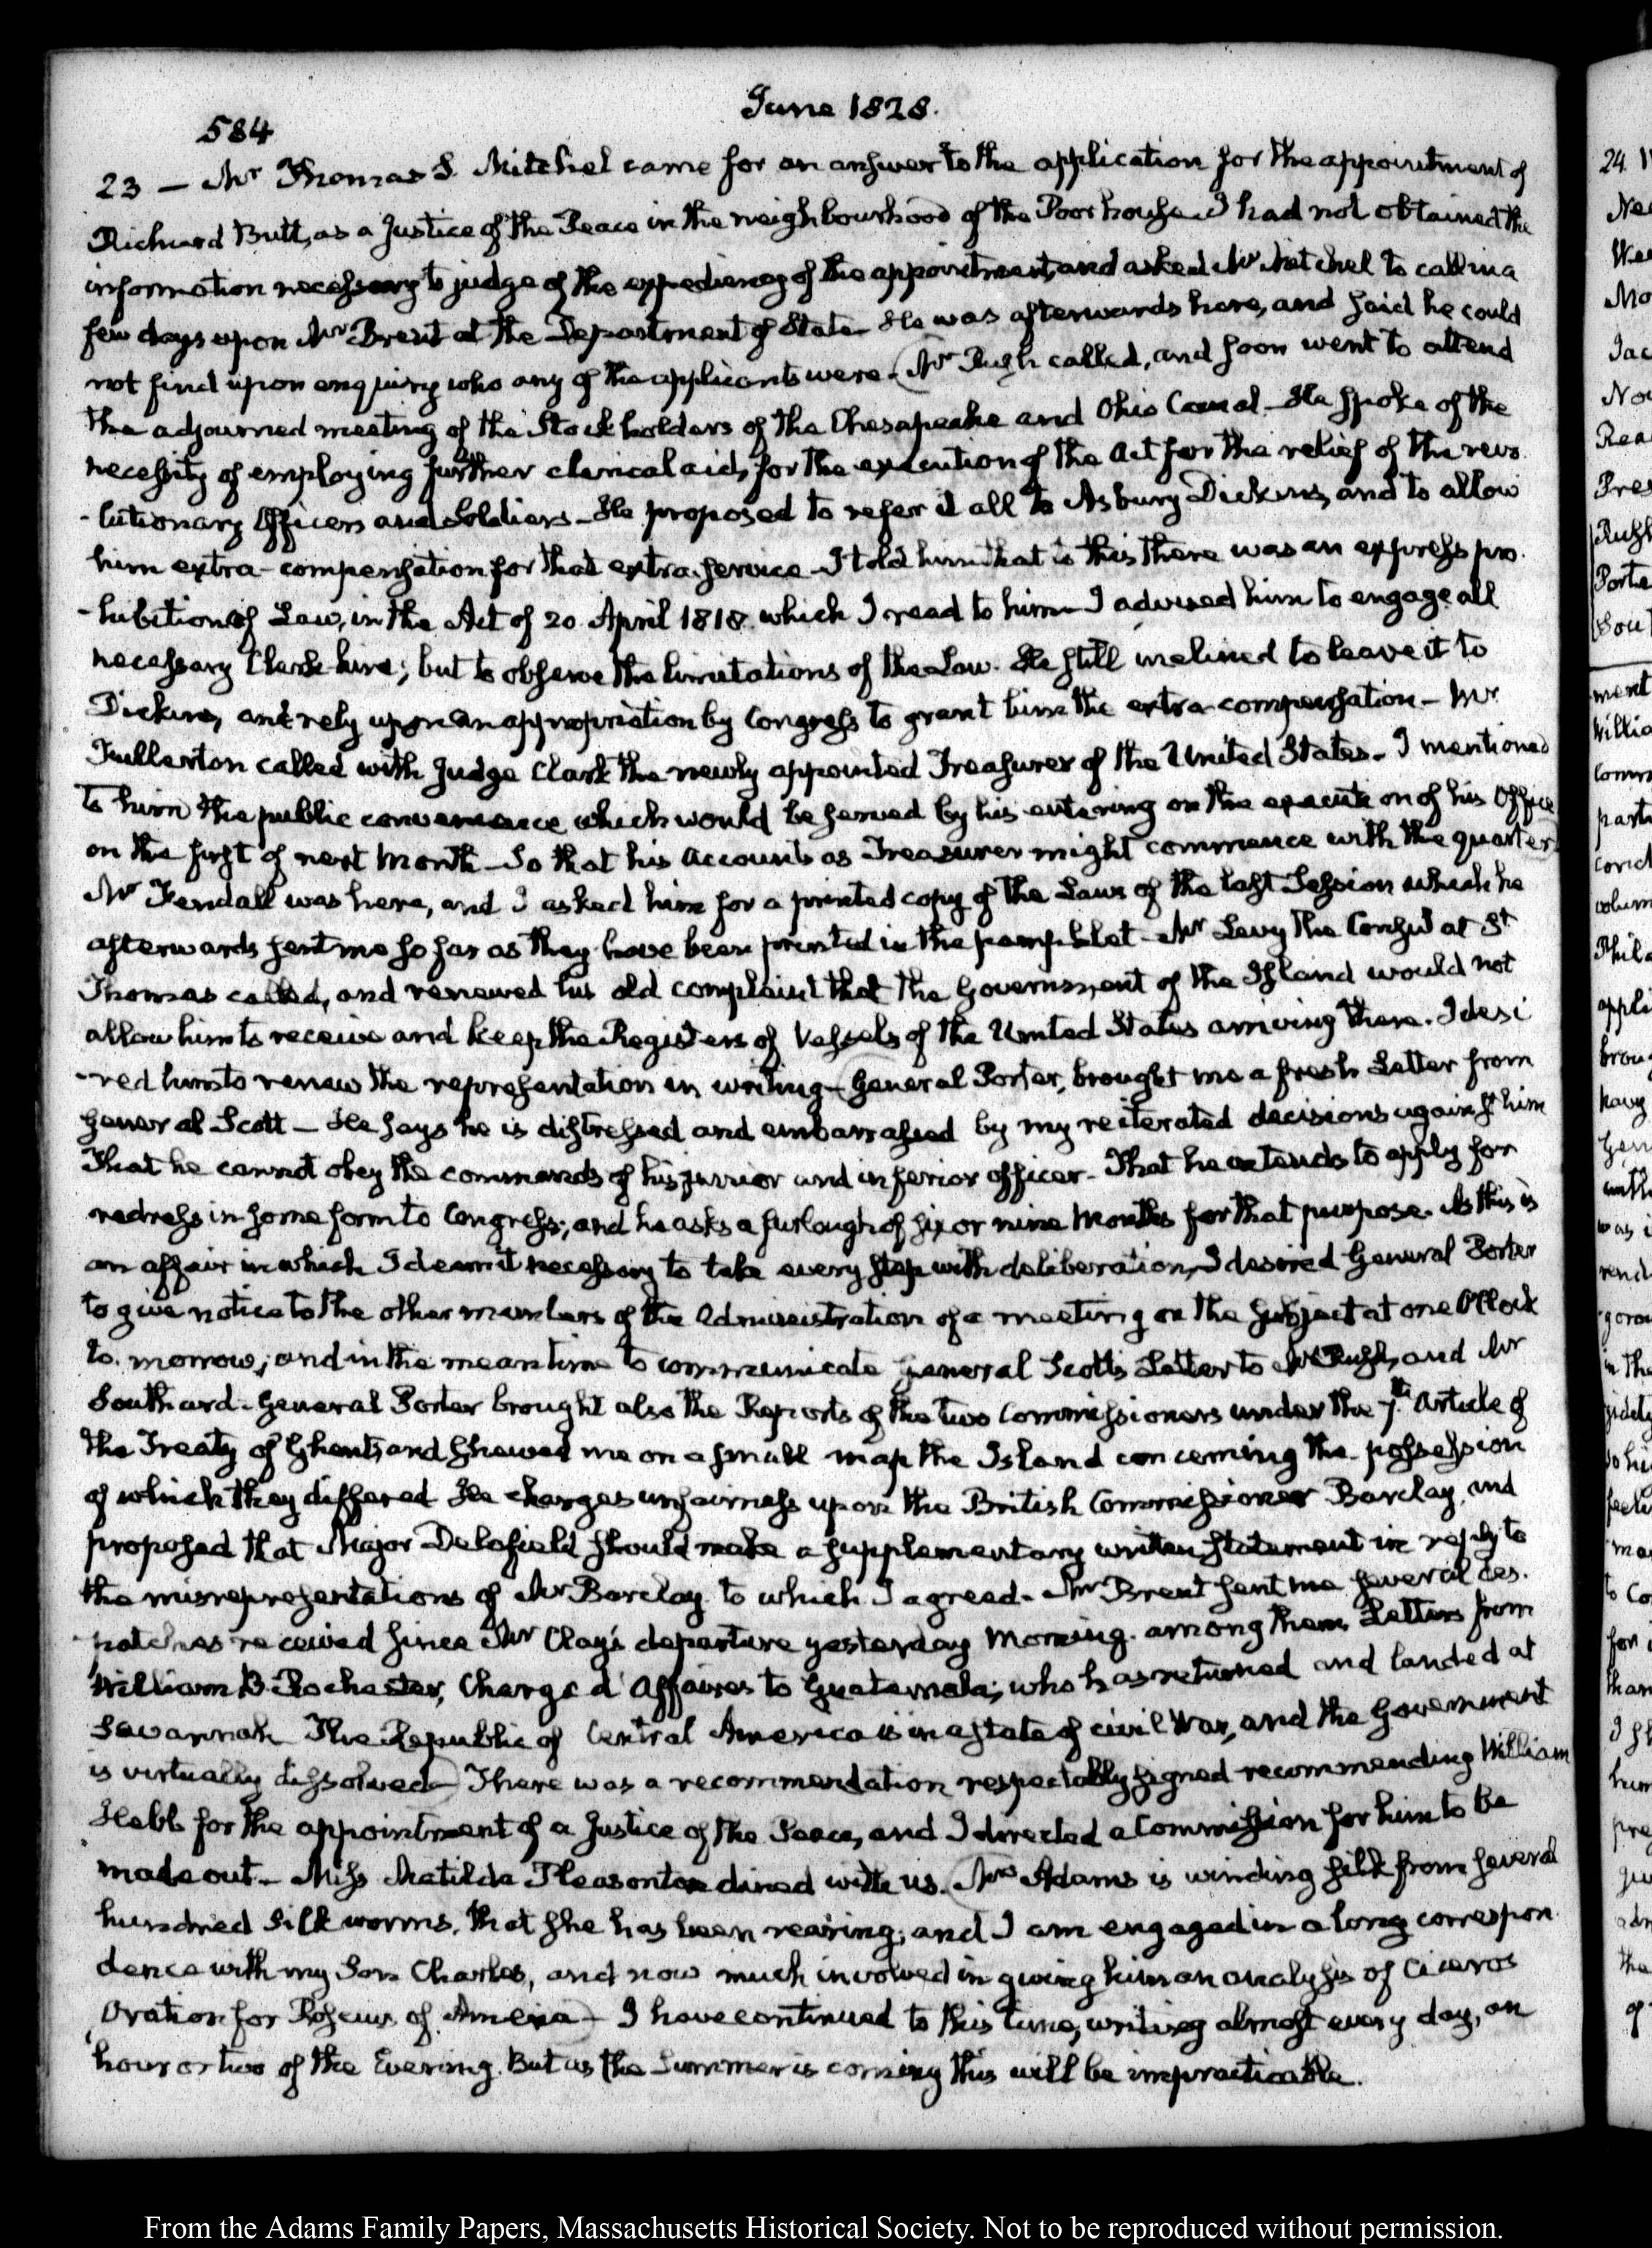 June 1828.
584
23 — Mr Thomas S. Mitchel came for an answer to the application for the appointment of
Richard Butt, as a Justice of the Peace in the neighbourhood of the Poor house. I had not obtained the
information necessary to judge of the expediency of the appointment, and asked Mr Mitchel to call in a
few days upon Mr Brent at the Department of State. He was afterwards here, and said he could
not find upon enquiry who any of the applicants were. Mr Rush called, and soon went to attend
the adjourned meeting of the Stockholders of the Chesapeake and Ohio Canal. He spoke of the
necessity of employing further clerical aid, for the execution of the Act for the relief of the revo
-lutionary Officers and Soldiers — He proposed to refer it all to Asbury Dickins, and to allow
him extra-compensation for that extra-service — I told him that to this there was an express pro
-hibition of Law, in the Act of 20 April 1818. which I read to him — I advised him to engage all
necessary Clerk-hire; but to observe the limitations of the Law. He still inclined to leave it to
Dickins, and rely upon an appropriation by Congress to grant him the extra-compensation — Mr
Fullerton called with Judge Clark the newly appointed Treasurer of the United States — I mentioned
to him the public convenience which would be served by his entering on the execution of his Office
on the first of next Month — So that his Accounts as Treasurer might commence with the quarter.
Mr Kendall was here, and I asked him for a printed copy of the Laws of the last Session which he
afterwards sent me so far as they have been printed in the pamphlet — Mr Levy the Consul at St
Thomas called, and renewed his old complaint that the Government of the Island would not
allow him to receive and keep the Registers of Vessels of the United States arriving there. I desi
-red him to renew the representation in writing — General Porter, brought me a fresh Letter from
General Scott — He says he is distressed and embarrassed by my reiterated decisions against him
That he cannot obey the commands of his junior and inferior officer — That he intends to apply for
redress in some form to Congress; and he asks a furlough of six or nine Months for that purpose. As this is
an affair in which I deem it necessary to take every step with deliberation, I desired General Porter
to give notice to the other members of the Administration of a meeting on the subject at one O'Clock
to-morrow; and in the mean time to communicate General Scott's Letter to Mr Rush, and Mr
Southard — General Porter brought also the Reports of the two Commissioners under the 7th. Article of
the Treaty of Ghent, and shewed me on a small map the Island concerning the possession
of which they differed. He charges unfairness upon the British Commissioner Barclay, and
proposed that Major Delafield should make a supplementary written statement in reply to
the misrepresentations of Mr Barclay. to which I agreed — Mr Brent sent me several des-
-patches received since Mr Clay's departure yesterday Morning. among them Letters from
William B Rochester, Chargé d'Affaires to Guatemala; who has returned and landed at
Savannah. The Republic of Central America is in a state of civil War, and the Government
is virtually dissolved — There was a recommendation respectably signed recommending William
Hebb for the appointment of a Justice of the Peace, and I directed a Commission for him to be
made out — Miss Matilda Pleasonton dined with us. Mrs Adams is winding silk from several
hundred Silk worms, that she has been rearing; and I am engaged in a long correspon
dence with my Son Charles, and now much involved in giving him an analysis of Ciceros
Oration for Roscius of Ameria — I have continued to this time, writing almost every day, an
hour or two of the Evening. But as the Summer is coming this will be impracticable.
From the Adams Family Papers, Massachusetts Historical Society. Not to be reproduced without permission.